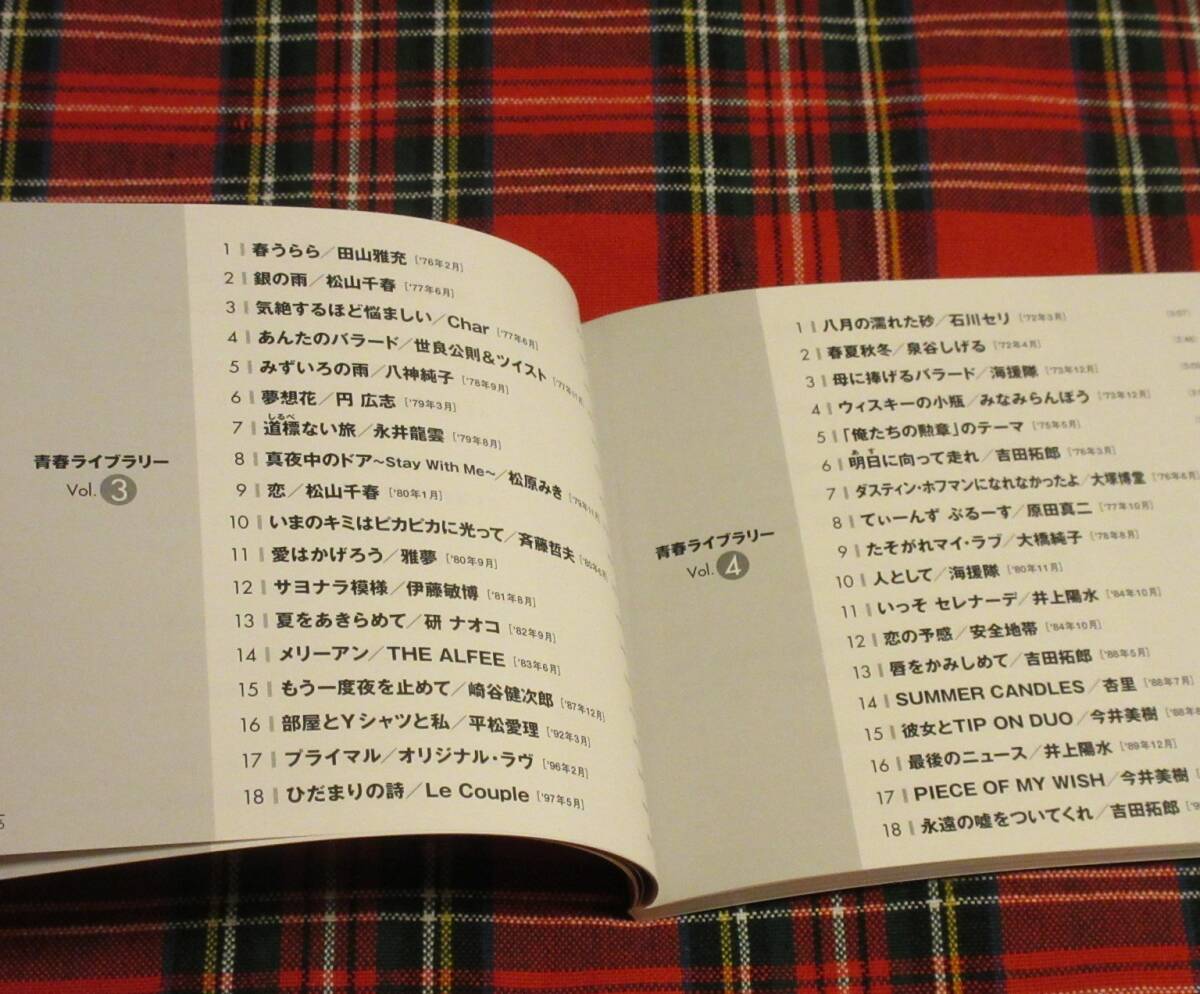 青春ライブラリー
Vol. 3
1 春うらら／田山雅充 ['76年2月]
2 銀の雨／松山千春 ['77年6月]
3 気絶するほど悩ましい／Char ['77年6月]
4 あんたのバラード／世良公則＆ツイスト ['77年11月]
5 みずいろの雨／八神純子 ['78年9月]
6 夢想花／円 広志 ['79年3月]
しるべ
7 道標ない旅／永井龍雲 ['79年8月]
8 真夜中のドア～Stay With Me～／松原みき ['79年11月]
9 恋／松山千春 ['80年1月]
10 いまのキミはピカピカに光って／斉藤哲夫 ['80年6月]
11 愛はかげろう／雅夢 ['80年9月]
12 サヨナラ模様／伊藤敏博 ['81年8月]
13 夏をあきらめて／研 ナオコ ['82年9月]
14 メリーアン／THE ALFEE ['83年6月]
15 もう一度夜を止めて／崎谷健次郎 ['87年12月]
16 部屋とYシャツと私／平松愛理 ['92年3月]
17 プライマル／オリジナル・ラヴ ['96年2月]
18 ひだまりの詩／Le Couple ['97年5月]
青春ライブラリー
Vol. 4
1 八月の濡れた砂／石川セリ ['72年3月]
2 春夏秋冬／泉谷しげる ['72年4月]
3 母に捧げるバラード／海援隊 ['73年12月]
4 ウィスキーの小瓶／みなみらんぼう ['73年12月]
5 「俺たちの勲章」のテーマ ['75年5月]
あす
6 明日に向って走れ／吉田拓郎 ['76年3月]
7 ダスティン・ホフマンになれなかったよ／大塚博堂 ['76年8月]
8 てぃーんず ぶるーす／原田真二 ['77年10月]
9 たそがれマイ・ラブ／大橋純子 ['78年8月]
10 人として／海援隊 ['80年11月]
11 いっそ セレナーデ／井上陽水 ['84年10月]
12 恋の予感／安全地帯 ['84年10月]
13 唇をかみしめて／吉田拓郎 ['88年5月]
14 SUMMER CANDLES／杏里 ['88年7月]
15 彼女とTIP ON DUO／今井美樹 ['88年
16 最後のニュース／井上陽水 ['89年12月]
17 PIECE OF MY WISH／今井美樹
18 永遠の嘘をついてくれ／吉田拓郎